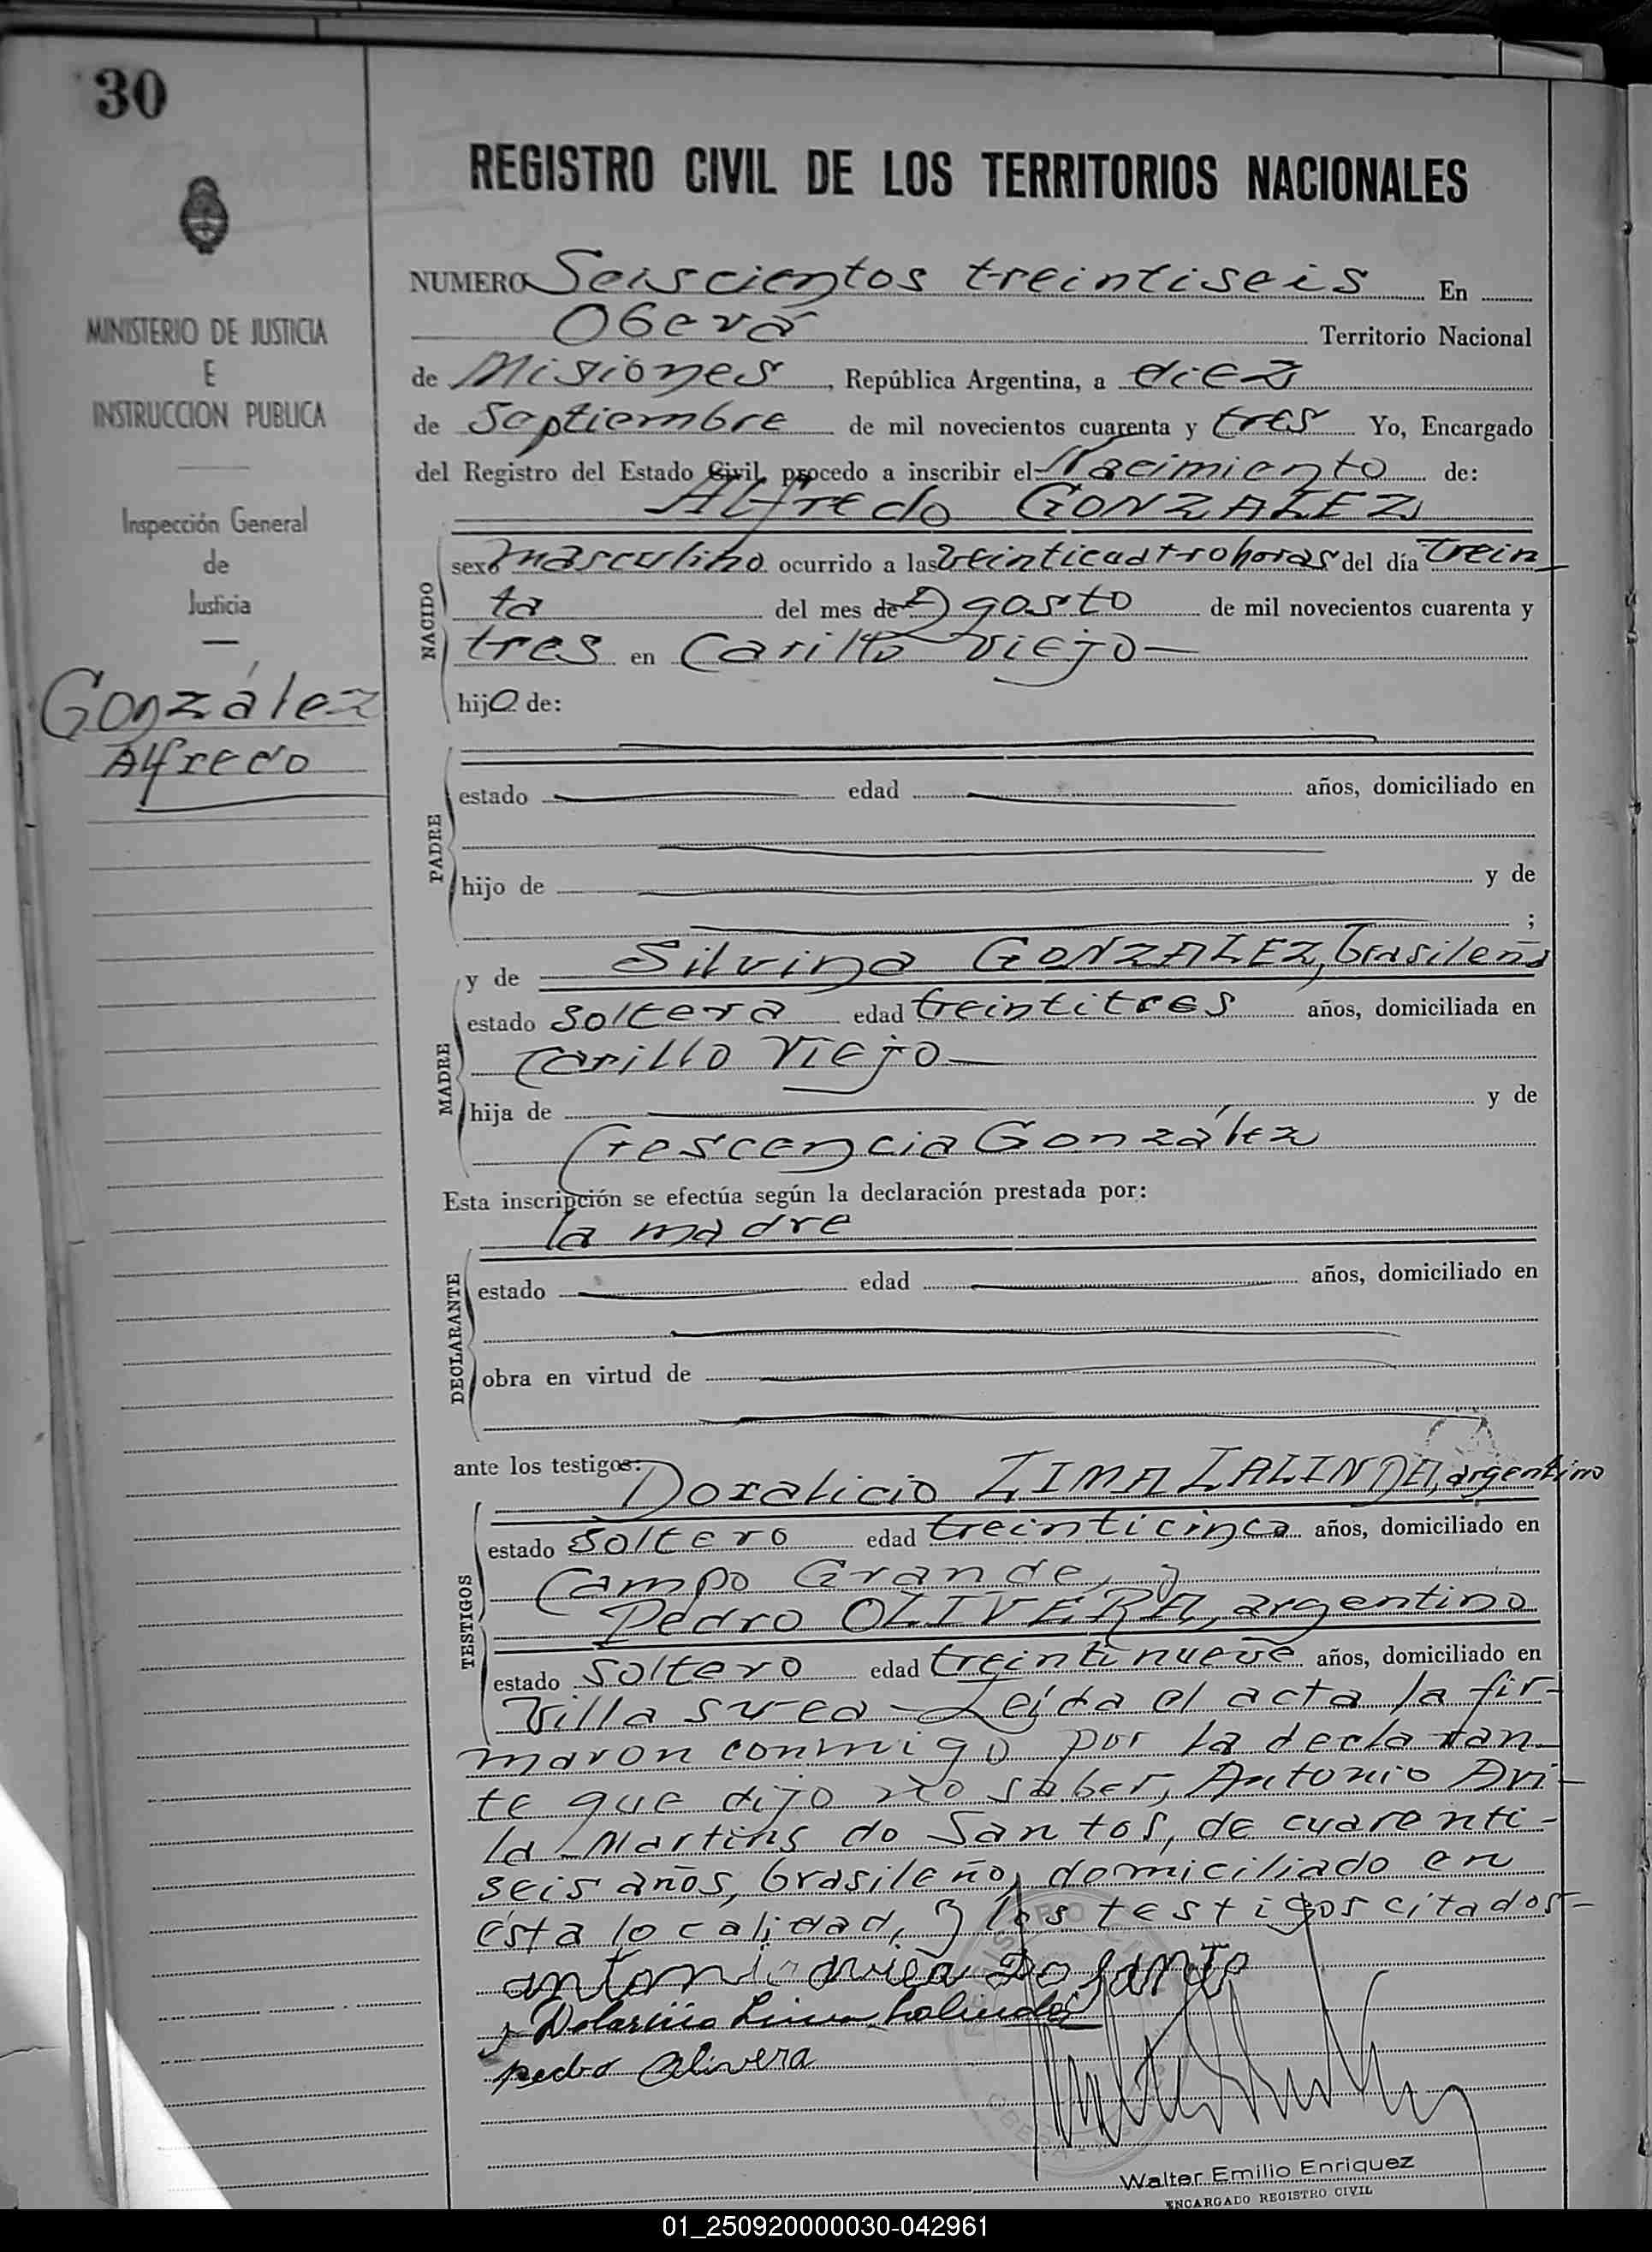 30
MINISTERIO DE JUSTICIA
E
INSTRUCCION PUBLICA
Inspección General
de
Justicia
González
Alfredo
REGISTRO CIVIL DE LOS TERRITORIOS NACIONALES
NUMERO Seiscientos treintiseis En
Oberá Territorio Nacional
de Misiones, República Argentina, a diez
de Septiembre de mil novecientos cuarenta y tres Yo, Encargado
del Registro del Estado Civil, procedo a inscribir el Nacimiento de:
Alfredo GONZALEZ
NACIDO
sexo masculino ocurrido a las veinticuatro horas del día trein
ta del mes de Agosto de mil novecientos cuarenta y
tres en Carillo Viejo
hijo de:
PADRE
estado edad años, domiciliado en
hijo de y de
;
MADRE
y de Silvina GONZALEZ, brasileña
estado soltera edad treintitres años, domiciliada en
Carillo Viejo
hija de y de
Crescencia González
Esta inscripción se efectúa según la declaración prestada por:
la madre
DECLARANTE
estado edad años, domiciliado en
obra en virtud de
ante los testigos:
TESTIGOS
Doralicio LIMA LALINDA, argentino
estado soltero edad treinticinco años, domiciliado en
Campo Grande, y
Pedro OLIVERA, argentino
estado soltero edad treintinueve años, domiciliado en
Villa Svea - Leída el acta la fir-
maron conmigo por la declaran
te que dijo no saber, Antonio Avi-
la Martins do Santos, de cuarenti-
seis años, brasileño, domiciliado en
ésta localidad, y los testigos citados-
Antonio Avila Do Santo
Dolaricio Lima Lalinda
pedro Olivera
Walter Emilio Enriquez
ENCARGADO REGISTRO CIVIL
01_250920000030-042961